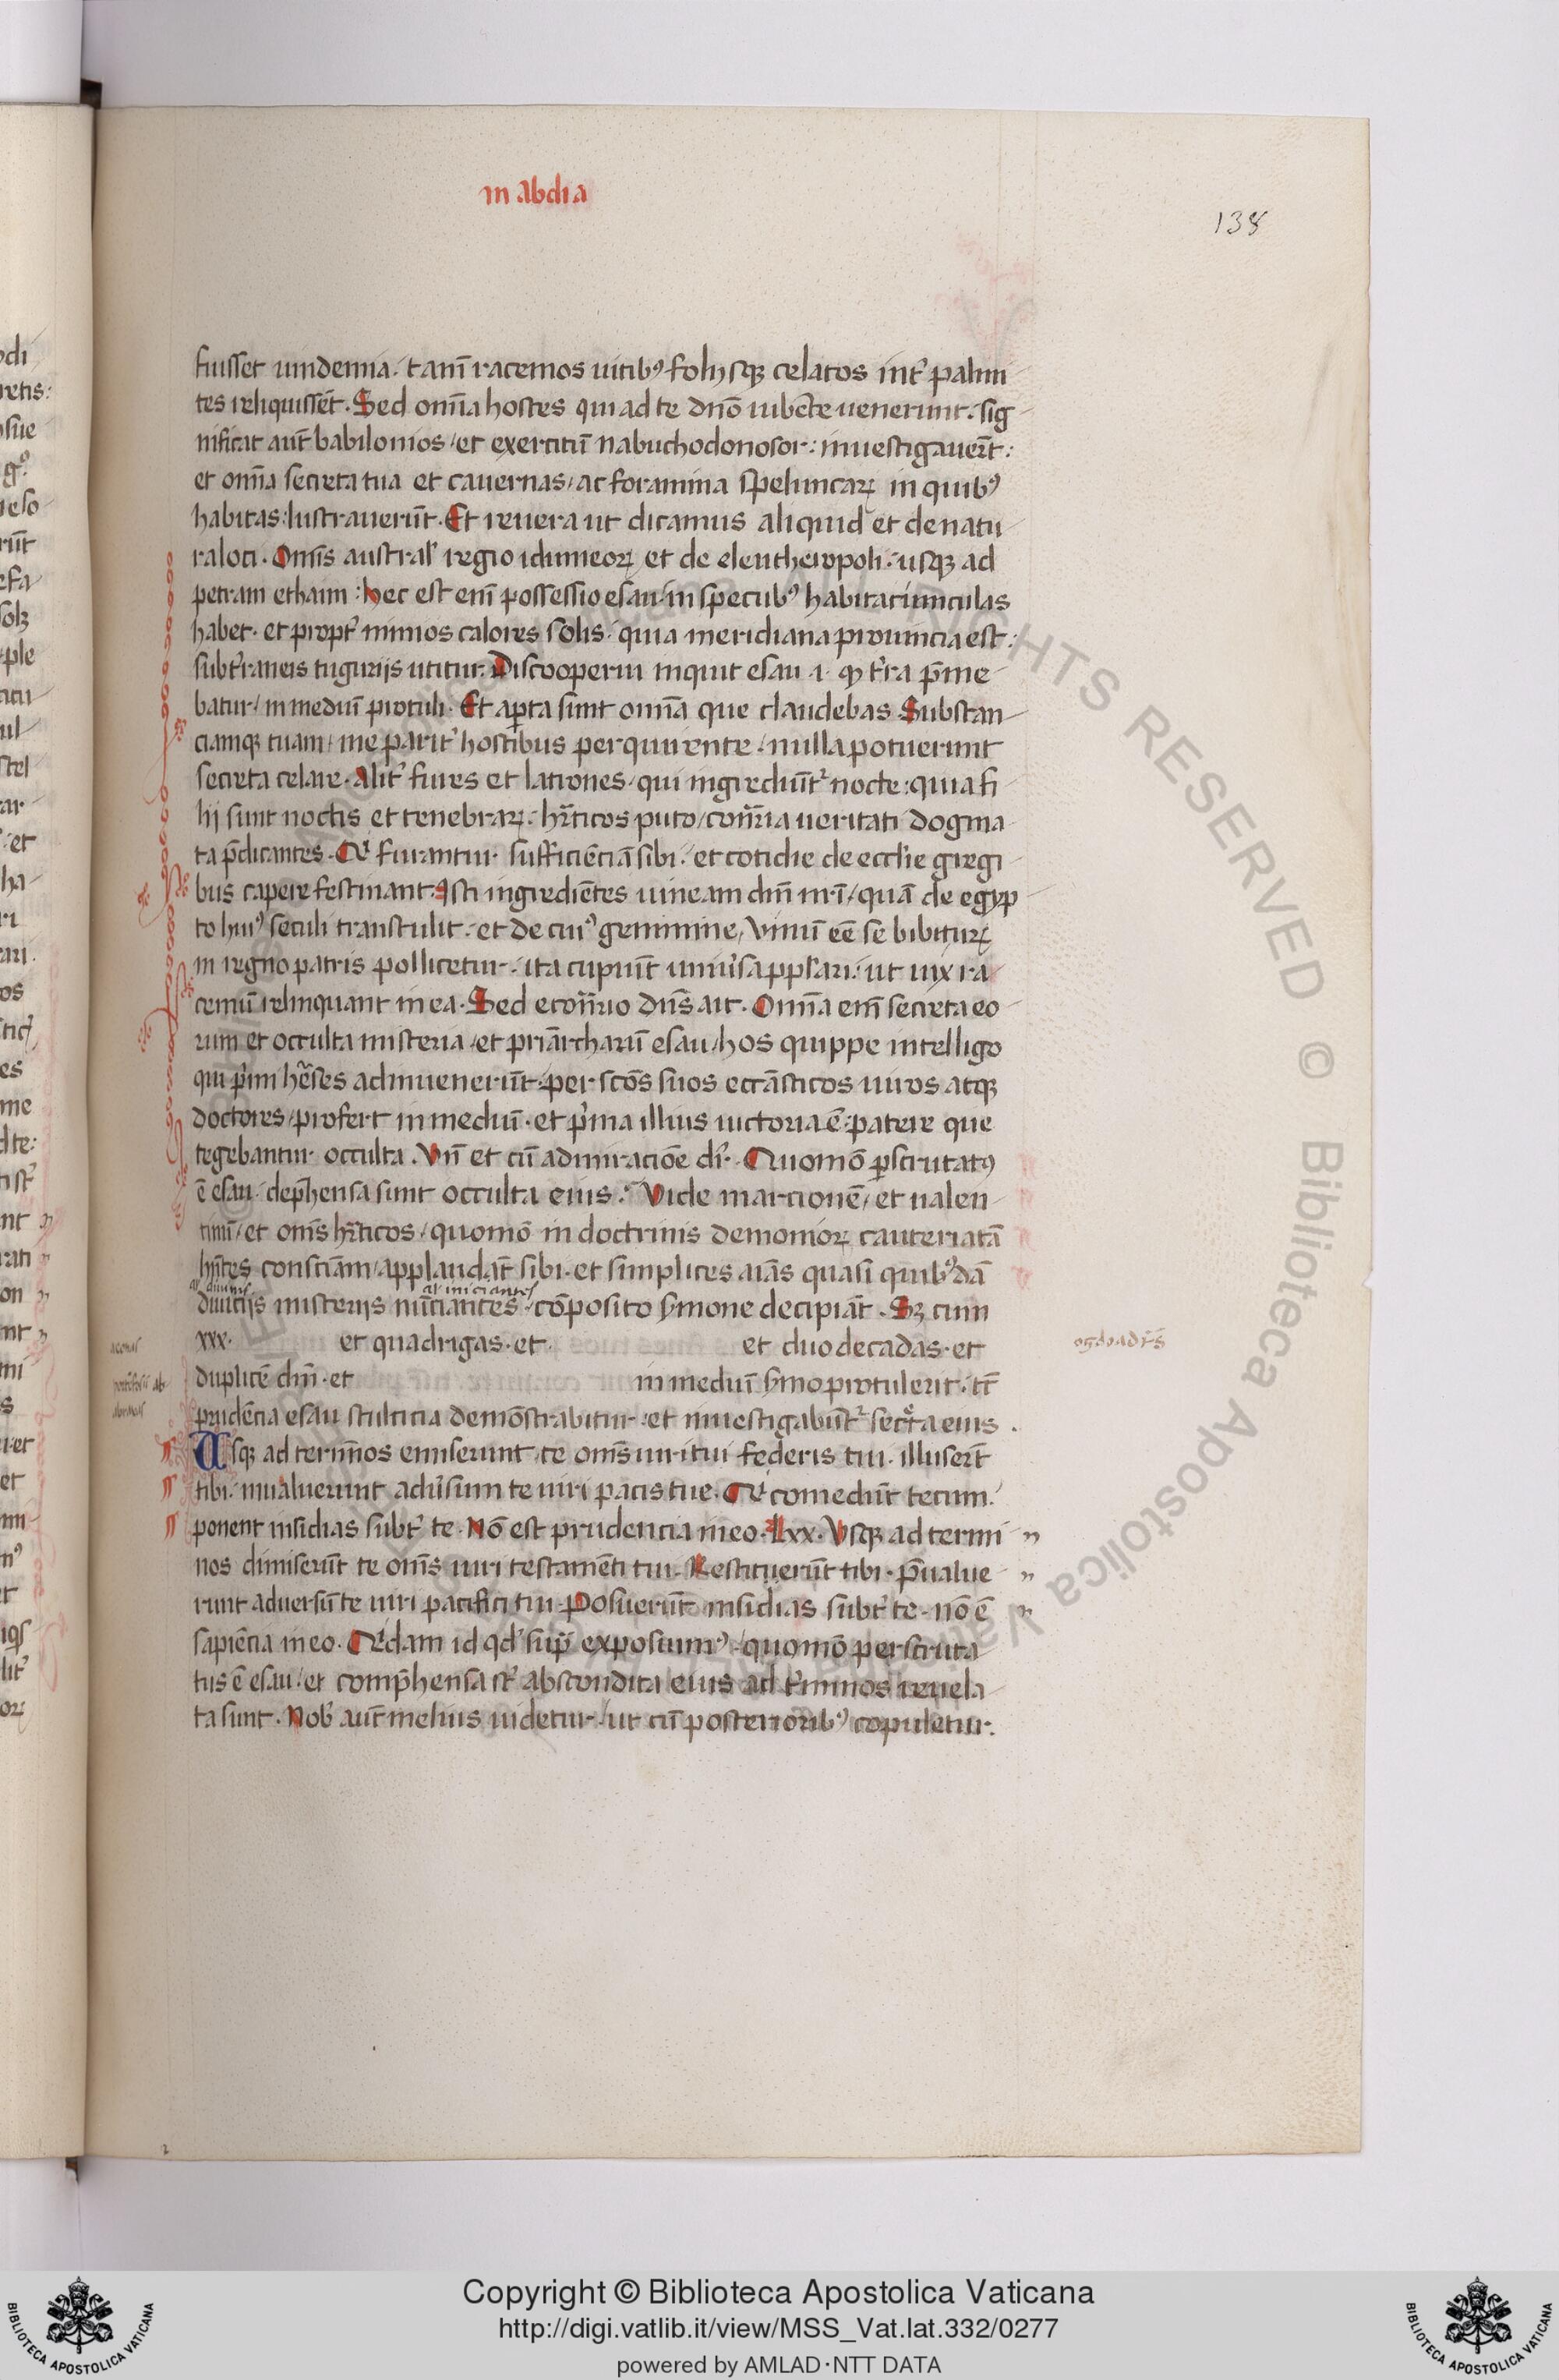 in abdia
138
fuisset uindemia. tam̄ racemos uitib⁹ folijsqꝫ celatos int̉ palmi
tes reliquissēt. Sed om̄ia hostes qui ad te dn̄o iubēte uenerunt. sig
nificat aut̄ babilonios et exercitū nabuchodonosor: inuestigauer̄t:
et om̄ia secreta tua et cauernas, ac foramina speluncaꝝ in quib⁹
habitas: lustrauerūt. Et reuera ut dicamus aliquid et de natu
ra loci. Om̄is austral̉ regio idumeoꝝ et de eleutheropoli. usqꝫ ad
petram et haim: hec est eni̅ possessio esau in specub⁹ habitatiunculas
habet. et propt̉ nimios calores solis. quia meridiana prouincia est:
subt̉raneis tugurijs utitur. Discooperui inquit esau .i. qͥ t̉ra p̄me
batur, in mediū protuli. Et aꝑta sunt om̄ia que claudebas Substan
ciamqꝫ tuam, me parit̉ hostibus perquirente. nulla potuerunt
secreta celare. Alit̉ fures et latrones, qui ingrediūt̉ nocte: quia fi
lij sunt noctis et tenebraꝝ. hr̄ticos puto, cont̄ria ueritati dogma
ta p̄dicantes. Qͥ furantur sufficiēciā sibi. et cotidie de eccl̄ie gregi
bus capere festinant. Isti ingrediētes uineam dn̄i nr̄i, quā de egyp
to hui⁹ seculi transtulit. et de cui⁹ genimine, uinū ēē se bibituꝝ
in regno patris pollicetur. ita cupiūt uniu̓sa popl̄ari. ut uix ra
cemū relinquant in ea. Sed econt̄rio dn̄s ait. Omnia em̄ secreta eo
rum et occulta misteria et priārcharū esau, hos quippe intelligo
qui p̓mi hēses adinuenerūt. per sc̄os suos eccāsticos uiros atqꝫ
doctores, profert in mediū. et p̓ma illius uictoria ē: patere que
tegebantur occulta. Vn̄ et cū admiracioē dr̄. Quomō ꝑscrutat⁹
ē esau. dep̄hensa sunt occulta eius: Vide marcionē, et ualen
tinū, et om̄s hr̄ticos, quomō in doctrinis demonioꝝ cauteriatā
hn̄tes consciām, applaudāt sibi. et simplices aīas quasi quib⁹dā
al diuinis al iniciantes
diuicijs misterijs nūciantes. cōposito s̓mone decipiāt. Sꝫ cum
xxx. et quadrigas. et et duodecadas. et
ogdoad̓s
duplicē dm̄. et in mediū s̓mo protulerit. tc̄
prudēcia esau stulticia demōstrabitur. et inuestigabūt̉ secͣta eius.
Vsqꝫ ad terminos emiserunt te om̄s uiri tui federis tui. illuser̄t
tibi. inualuerunt adu̓sum te uiri pacis tue. Qͥ comedūt tecum.
ponent insidias subt̉ te. Nō est prudencia in eo. Lxx. Vsqꝫ ad termi
nos dimiserūt te om̄s uiri testamēti tui. Restituerūt tibi. p̄ualue
runt aduersū te uiri pacifici tui. Posuerūt insidias subt̉ te. nō ē
sapiēcia in eo. Qͥdam id qd̓ sup̄ exposuim⁹, quomō perscruta
tus ē esau, et comp̄hensa st̉ abscondita eius ad t̉minos reuela
ta sunt. Nob̓ aut̄ melius uidetur, ut cū posteriorib⁹ copuletur.
Copyright © Biblioteca Apostolica Vaticana
http://digi.vatlib.it/view/MSS_Vat.lat.332/0277
powered by AMLAD·NTT DATA